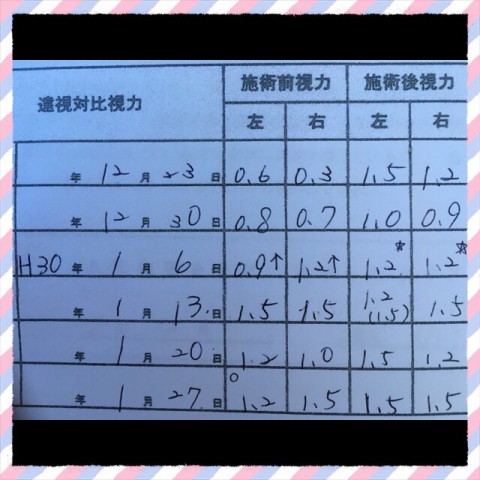 遠視対比視力 施術前視力 施術後視力
左 右 左 右
年 12 月 23 日 0.6 0.3 1.5 1.2
年 12 月 30 日 0.8 0.7 1.0 0.9
H30 年 1 月 6 日 0.9↑ 1.2↑ 1.2☆ 1.2☆
年 1 月 13 日 1.5 1.5 1.2 (1.5) 1.5
年 1 月 20 日 1.2 1.0 1.5 1.2
年 1 月 27 日 1.2 1.5 1.5 1.5